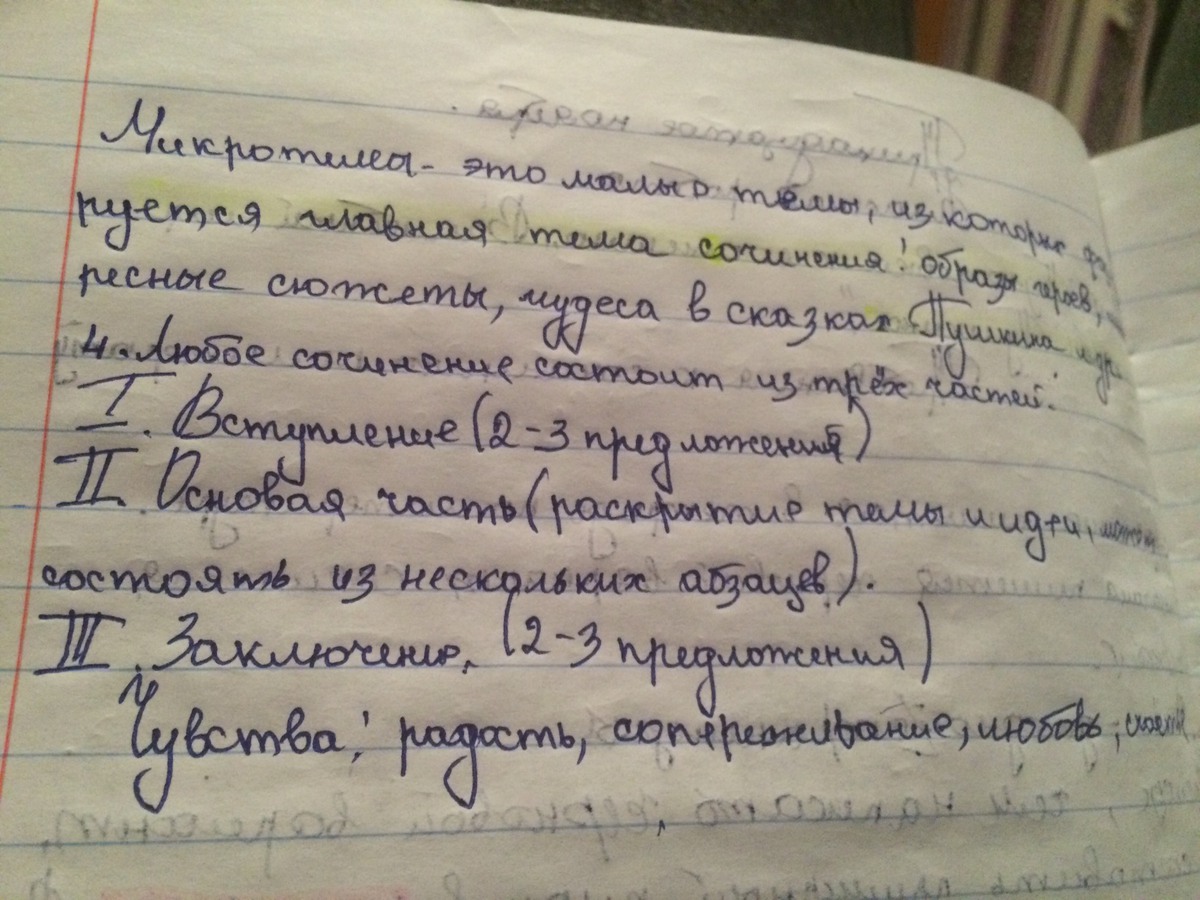 Микротемы - это малые темы, из которых
руется главная тема сочинения: образы героев,
ресные сюжеты, чудеса в сказках Пушкина и др.
4. Любое сочинение состоит из трёх частей:
I. Вступление (2-3 предложения)
II. Основая часть (раскрытие темы и идеи, может
состоять из нескольких абзацев).
III. Заключение. (2-3 предложения)
Чувства: радость, сопереживание, любовь,